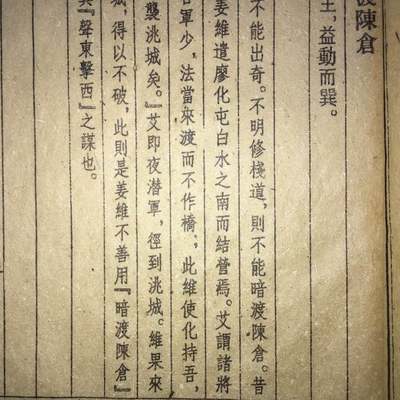 渡陳倉
主，益動而巽。
不能出奇。不明修棧道，則不能暗渡陳倉。昔
姜維遣廖化屯白水之南而結營焉。艾謂諸將
軍少，法當來渡而不作橋，此維使化持吾，
襲洮城矣。』艾即夜潛軍，徑到洮城。維果來
城，得以不破，此則是姜維不善用『暗渡陳倉』
其『聲東擊西』之謀也。